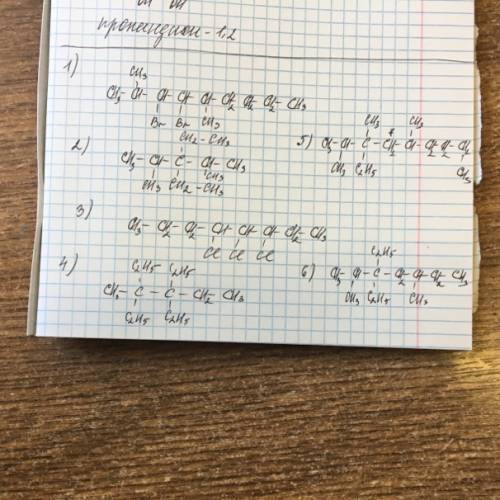 OH OH
пропандиол-1,2
1)
CH3
CH3-CH-CH-CH-CH-CH2-CH2-CH2-CH3
Br Br CH3
2)
CH2-CH3
CH3-CH-C-CH-CH3
CH3 CH2-CH3 CH3
3)
CH3-CH2-CH2-CH-CH-CH-CH2-CH3
Cl Cl Cl
4)
C2H5 C2H5
CH3-C-C-CH2-CH3
C2H5 C2H5
5)
CH3 CH3
CH3-CH-C-CH2-CH-CH2-CH2-CH2
CH3 C2H5 CH3
6)
C2H5
CH3-CH-C-CH2-CH-CH2-CH3
CH3 C2H5 CH3